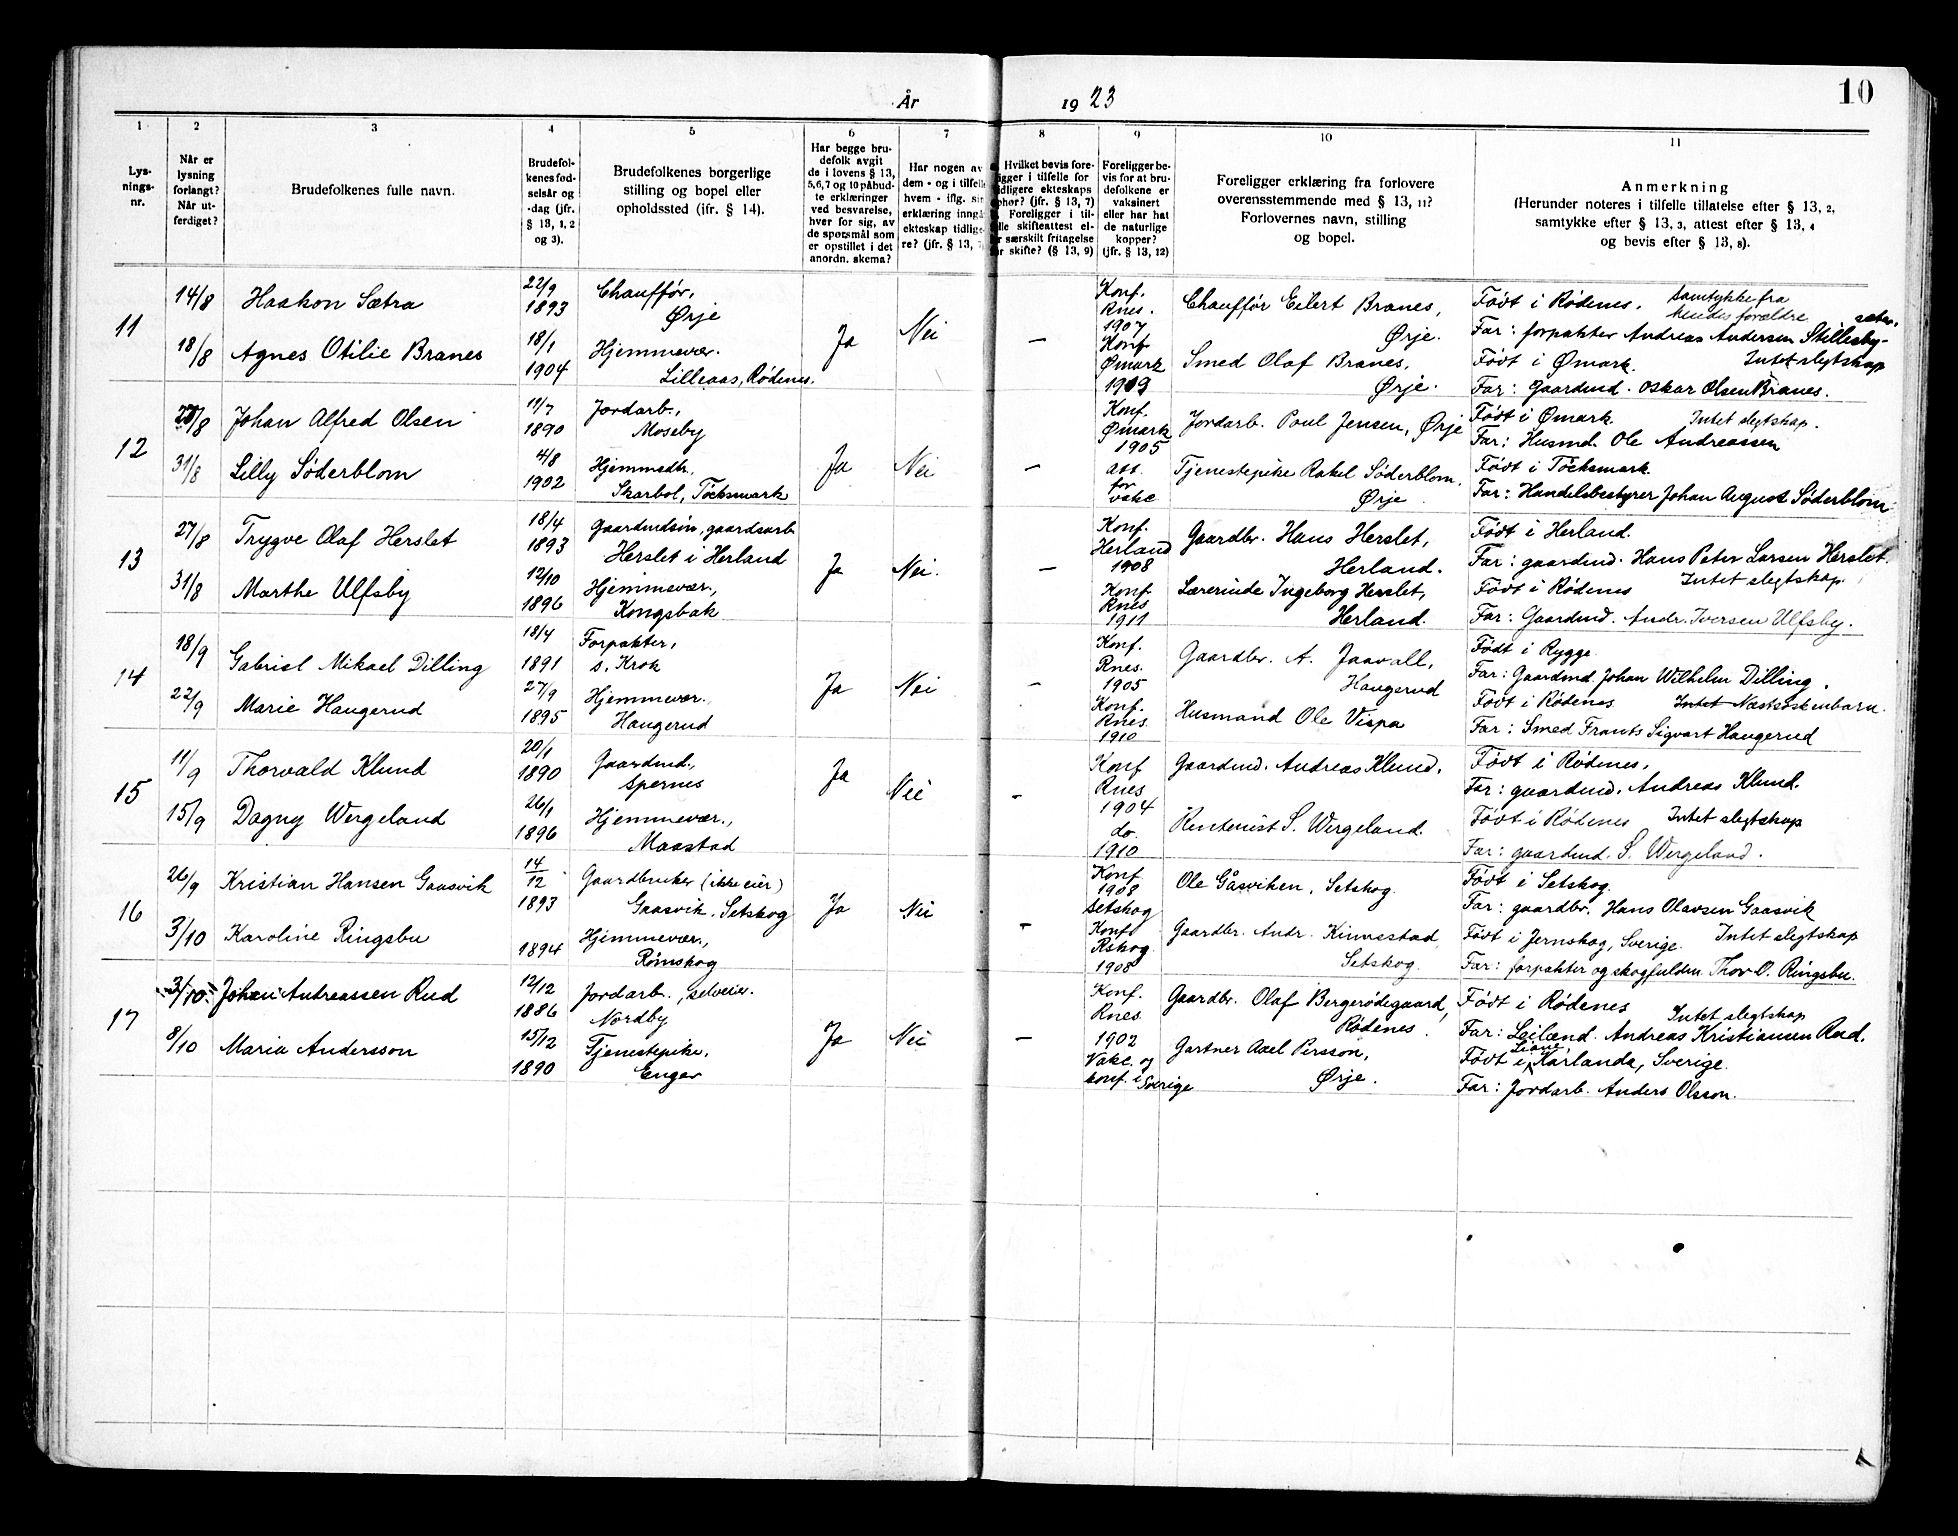 10
År 1923
1 2 3 4 5 6 7 8 9 10 11
Lys-
nings-
nr.
Når er
lysning
forlangt?
Når ut-
ferdiget?
Brudefolkenes fulle navn.
Brudefol-
kenes fød-
selsår og
-dag (jfr.
§ 13, 1, 2
og 3).
Brudefolkenes borgerlige
stilling og bopel eller
opholdssted (ifr. § 14).
Har begge bru-
defolk avgit
de i lovens § 13,
5,6,7 og 10 påbud-
te erklæringer
ved besvarelse,
hver for sig, av
de spørsmål som
er opstillet i det
anordn. skema?
Har nogen av
dem - og i tilfelle
hvem - iflg. sin
erklæring inngå
ekteskap tidlige-
re? (jfr. § 13, 7)
Hvilket bevis fore-
ligger i tilfelle for
tidligere ekteskaps
ophør? (jfr. § 13, 7)
Foreligger i til-
felle skifteattest el-
ler særskilt fritagelse
for skifte? (§ 13, 9)
Foreligger be-
vis for at bru-
defolkene er
vaksinert
eller har hat
de naturlige
kopper?
(jfr. § 13, 12)
Foreligger erklæring fra forlovere
overensstemmende med § 13, 11?
Forlovernes navn, stilling
og bopel.
Anmerkning
(Herunder noteres i tilfelle tillatelse efter § 13, 2,
samtykke efter § 13, 3, attest efter § 13, 4
og bevis efter § 13, 8).
11
14/8
18/8
Haakon Sætra
Agnes Otilie Branes
22/9
1893
18/1
1904
Chauffør,
Ørje
Hjemmevær.
Lilleaas, Rødenes.
Ja
Nei
-
Konf.
Rnes.
1907
Konf
Ømark
1919
Chauffør Eilert Branes,
Ørje.
Smed Olaf Branes,
Ørje.
Født i Rødenes. Samtykke fra
hendes forældre
Far: forpakter Andreas Andersen Stillesby-
sæter.
Født i Ømark. Intet slegtskap
Far: Gaardmd. Oskar Olsen Branes.
12
27/8
31/8
Johan Alfred Olsen
Lilly Söderblom
11/7
1890
4/8
1902
Jordarb.,
Moseby
Hjemmedtr.
Skarbol, Töcksmark
Ja
Nei
-
Konf.
Ømark
1905
att.
for
vakc
Jordarb. Paul Jensen, Ørje
Tjenestepike Rakel Söderblom,
Ørje
Født i Ømark. Intet slegtskap.
Far: Husmd. Ole Andreassen
Født i Töcksmark.
Far: Handelsbestyrer Johan August Söderblom
13
27/8
31/8
Trygve Olaf Herslet
Marthe Ulfsby
18/4
1893
12/10
1896
Gaardmdsön, gaardsarb
Herslet i Herland
Hjemmevær.,
Kongsbak
Ja
Nei.
-
Konf.
Herland
1908
Konf
Rnes
1911
Gaardbr. Hans Herslet,
Herland.
Lærerinde Ingeborg Herslet,
Herland.
Født i Herland.
Far: gaardmd. Hans Peter Larsen Herslet.
Født i Rødenes Intet slegtskap
Far: Gaardmd. Andr. Iversen Ulfsby.
14
18/9
22/9
Gabriel Mikael Dilling
Marie Haugerud
18/4
1891
27/9
1895
Forpakter,
s. Krok
Hjemmevær.
Haugerud
Ja
Nei
-
Konf.
Rnes.
1905
Konf.
Rnes.
1910
Gaardbr. A. Jaavall,
Haugerud
Husmand Ole Vispa
Født i Rygge.
Far: Gaardmd Johan Wilhelm Dilling.
Født i Rødenes. Intet Næstsøskenbarn.
Far: Smed Frants Sigvart Haugerud
15
11/9
15/9
Thorvald Klund
Dagny Wergeland
20/1
1890
26/1
1896
Gaardmd.,
Spernes
Hjemmevær.,
Maastad
Ja
Nei
-
Konf
Rnes
1904
do.
1910
Gaardmd. Andreas Klund.
Rentenist S. Wergeland.
Født i Rødenes.
Far: gaardmd. Andreas Klund.
Født i Rødenes Intet slegtskap
Far: gaardmd. S. Wergeland.
16
26/9
3/10
Kristian Hansen Gaasvik
Karoline Ringsbu
14/12
1893
1894
Gaardbruker (ikke eier)
Gaasvik, Setskog
Hjemmevær.,
Rømskog
Ja
Nei
-
Konf.
1908
Setskog
Konf
Rskog
1908
Ole Gåsviken, Setskog.
Gaardbr. Andr. Kinnestad
Setskog.
Født i Setskog.
Far: gaardbr. Hans Olavsen Gaasvik
Født i Jernskog, Sverige. Intet slegtskap
Far: forpakter og skogfuldm. Thor O. Ringsbu.
17
3/10
8/10
Johan Andreassen Rud
Maria Andersson
12/12
1886
15/12
1890
Jordarb., selveier.
Nordby
Tjenestepike,
Enger
Ja
Nei
-
Konf.
Rnes
1902
Vakc. og
konf. i Sverige
Gaardbr. Olaf Bergerødegaard,
Rødenes.
Gartner Axel Persson,
Ørje.
Født i Rødenes Intet slegtskap
Far: Leilænd. Andreas Kristiansen Rud.
Født i Karlanda, Sverige.
Far: Jordarb. Anders Olsson.